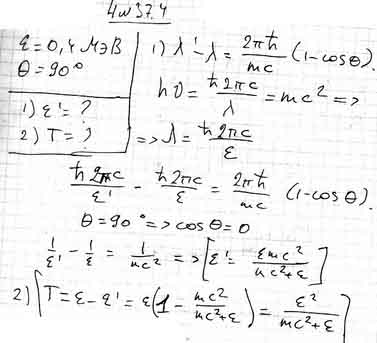 4и37.4
ε = 0,4 МэВ
θ = 90°
1) ε' = ?
2) T = ?
1) λ' - λ = 2πħ/mc (1 - cosθ).
hυ = ħ2πc/λ = mc² =>
=> λ = ħ2πc/ε
ħ2πc/ε' - ħ2πc/ε = 2πħ/mc (1 - cosθ).
θ = 90° => cosθ = 0
1/ε' - 1/ε = 1/mc² => [ε' = εmc²/mc²+ε]
2) [T = ε - ε' = ε(1 - mc²/mc²+ε) = ε²/mc²+ε]